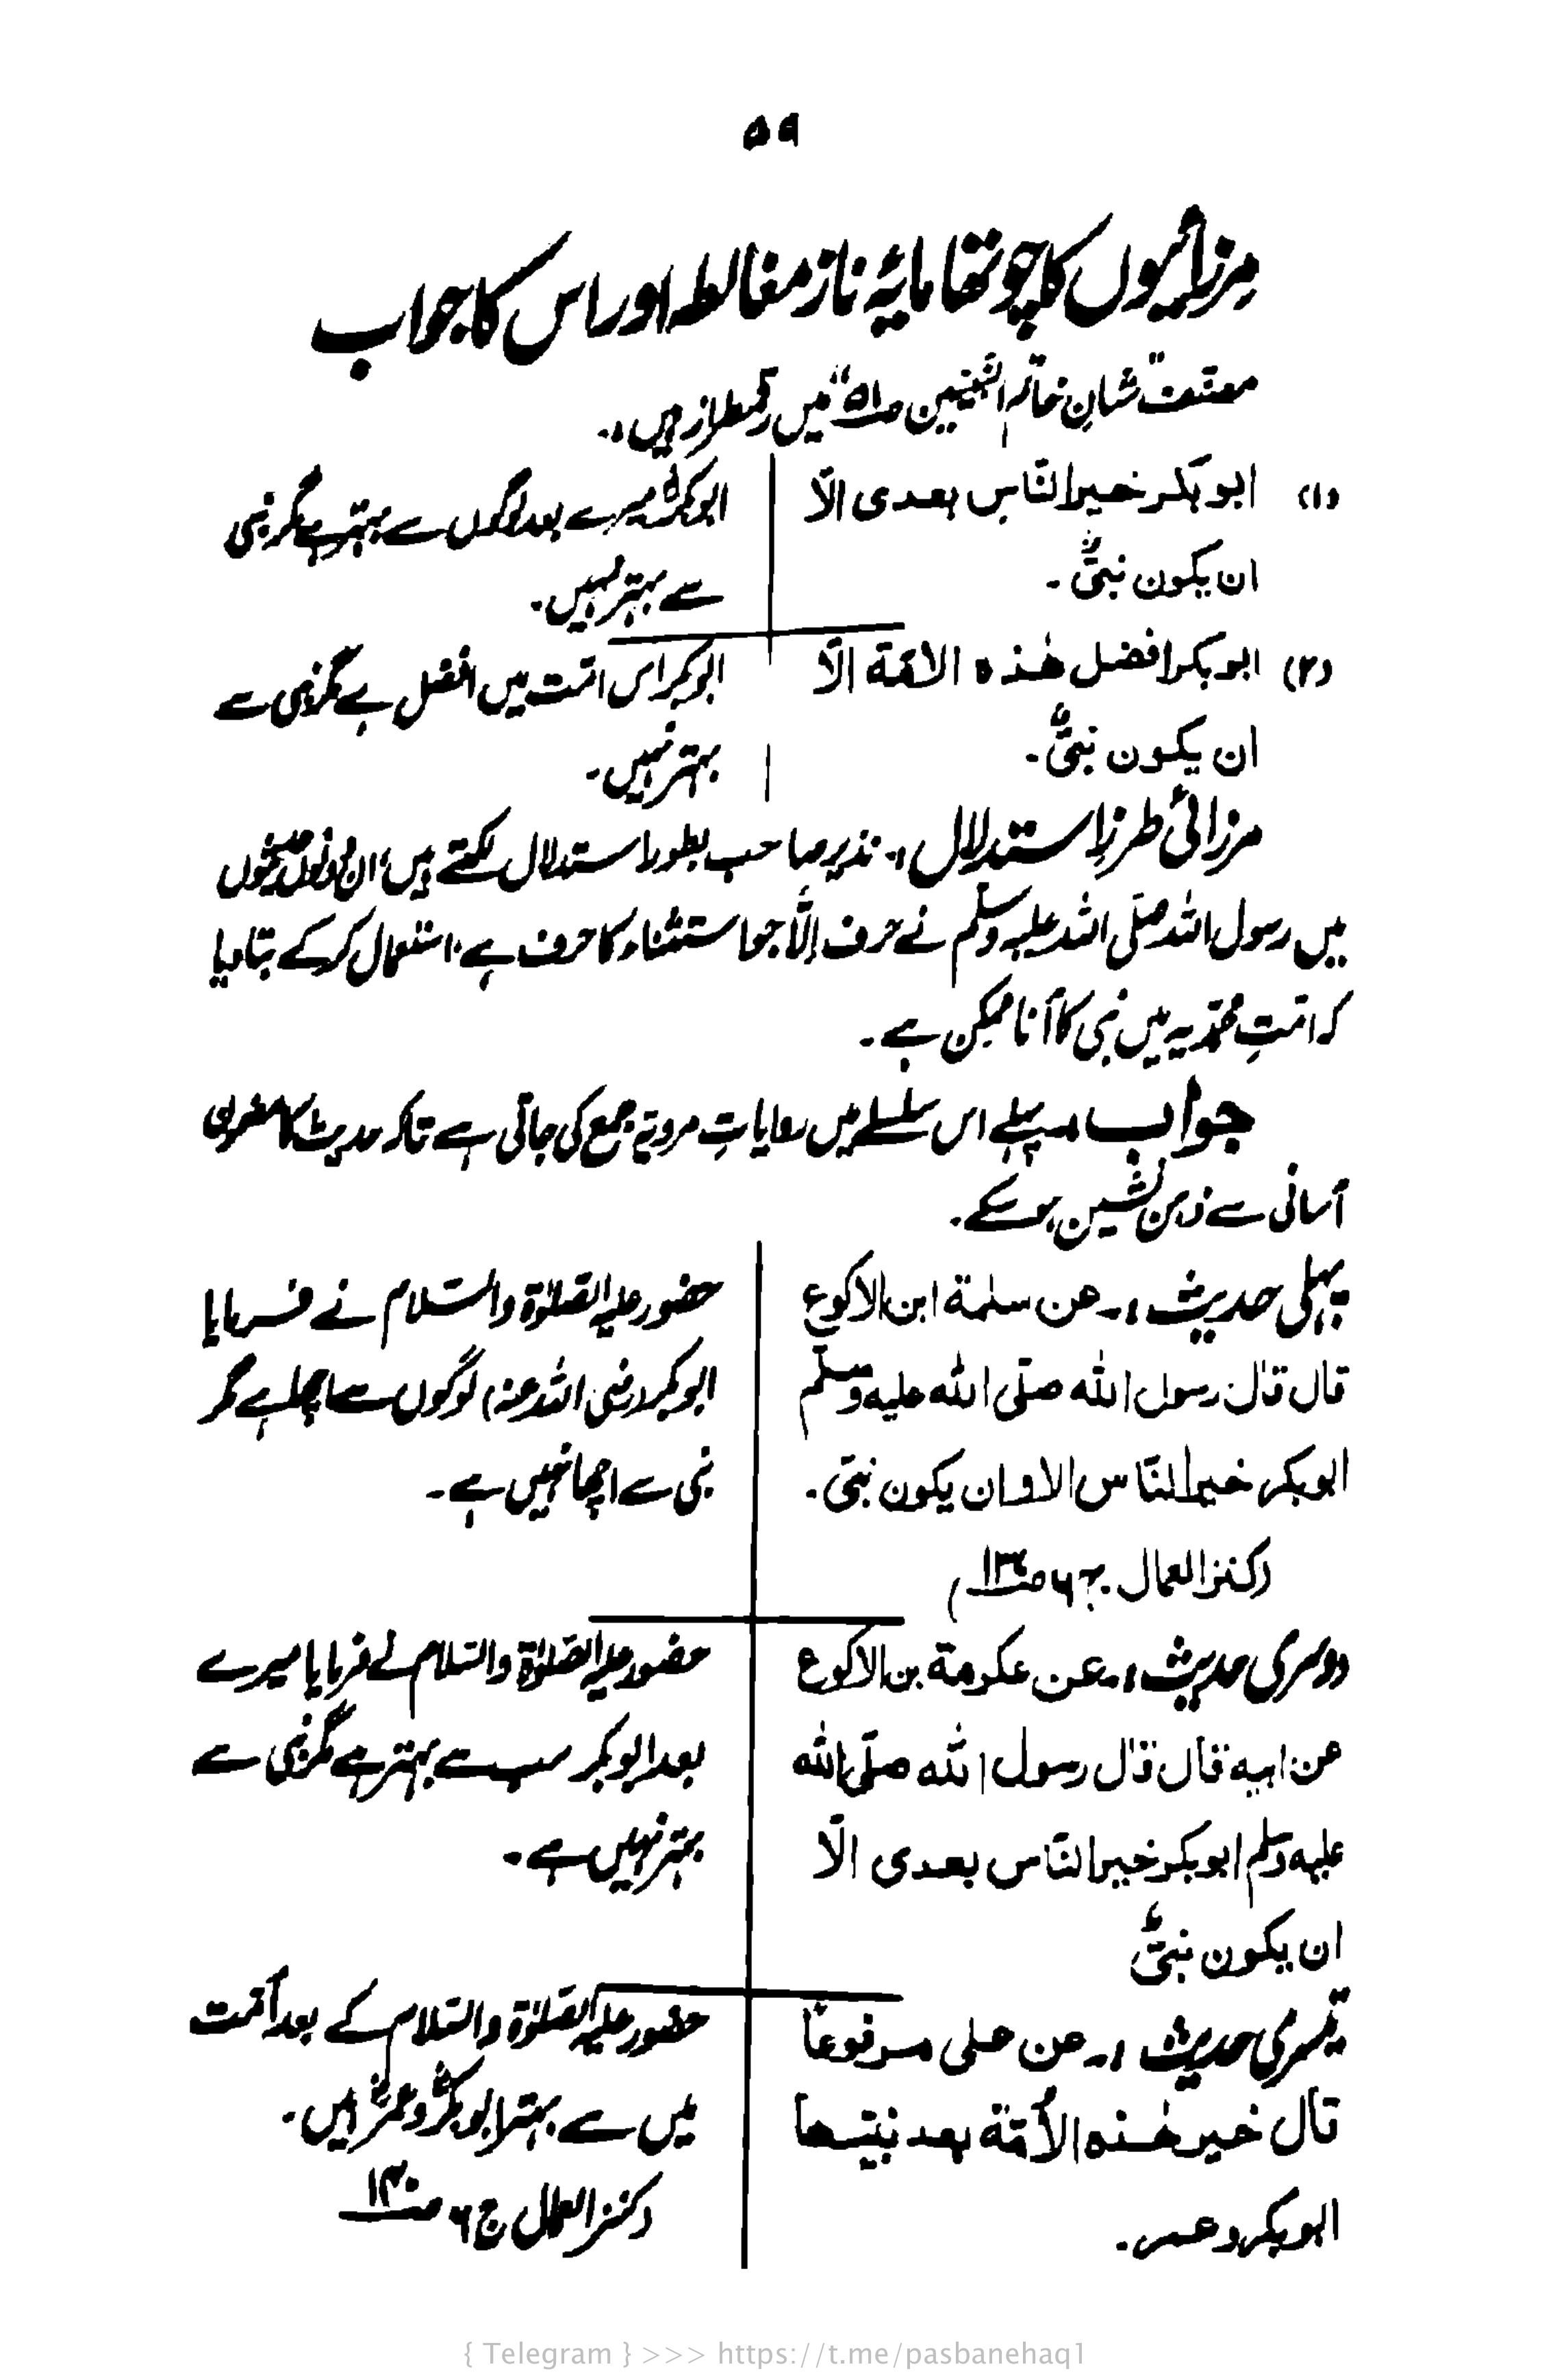 ۵۹
مرزائیوں کا چوتھا مایۂ ناز مغالطہ اور اس کا جواب
مصنف "شانِ خاتم النبیین ص۵۱" میں رقمطراز ہیں :۔
(۱) ابو بکر خیر الناس بعدی الّا
ان یکون نبیٌّ ۔
ابوبکرؓ میرے بعد لوگوں سے بہتر ہے مگر نبی
سے بہتر نہیں۔
(۲) ابو بکر افضل ھٰذہ الامّة الّا
ان یکون نبیٌّ۔
ابوبکر اس امّت میں افضل ہے مگر نبی سے
بہتر نہیں۔
مرزائی طرزِ استدلال :۔ نذیر صاحب بطور استدلال لکھتے ہیں، ان دونوں حدیثوں
میں رسول اللہ صلّی اللہ علیہ وسلّم نے حرف اِلَّا جو استثناء کا حرف ہے، استعمال کر کے بتا دیا
کہ امّتِ محمّدیہ میں نبی کا آنا ممکن ہے۔
جواب :۔ پہلے اس سلسلے میں روایاتِ مرویّہ جمع کی جاتی ہے تاکہ حدیث کا
آسانی سے ذہن نشین ہو سکے۔
پہلی حدیث :۔ عن سلمة ابن الاکوع
قال قال رسول اللہ صلّی اللہ علیہ وسلّم
ابوبکر خیر النّاس الا ان یکون نبیّ۔
(کنز العمال ج ۶ ص
حضور علیہ الصّلوٰۃ والسّلام نے فرمایا
ابوبکر (رضی اللہ عنہ) لوگوں سے اچھا ہے مگر
نبی سے اچھا نہیں ہے۔
دوسری حدیث :۔ عن عکرمة بن الاکوع
عن ابیہ قال قال رسول اللہ صلّی اللہ
علیہ وسلم ابوبکر خیر النّاس بعدی الّا
ان یکون نبیٌّ
حضور علیہ الصّلوٰۃ والسّلام نے فرمایا میرے
بعد ابوبکر سب سے بہتر ہے مگر نبی سے
بہتر نہیں ہے۔
تیسری حدیث :۔ عن علی مرفوعاً
قال خیر ھٰذہ الأمّة بعد نبیّھا
ابوبکر و عمر۔
حضور علیہ الصّلوٰۃ والسّلام کے بعد اُمّت
میں سے بہتر ابوبکرؓ و عمرؓ ہیں۔
(کنز العمال ج ۶ ص
{ Telegram } >>> https://t.me/pasbanehaq1